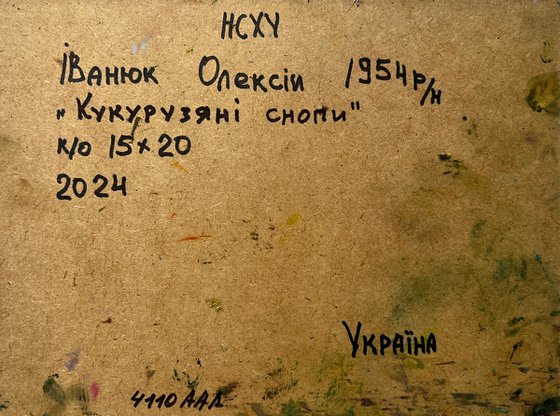 НСХУ
Іванюк Олексій 1954 р/н
„Кукурузяні снопи"
к/о 15×20
2024
Україна
4110 ААЛ